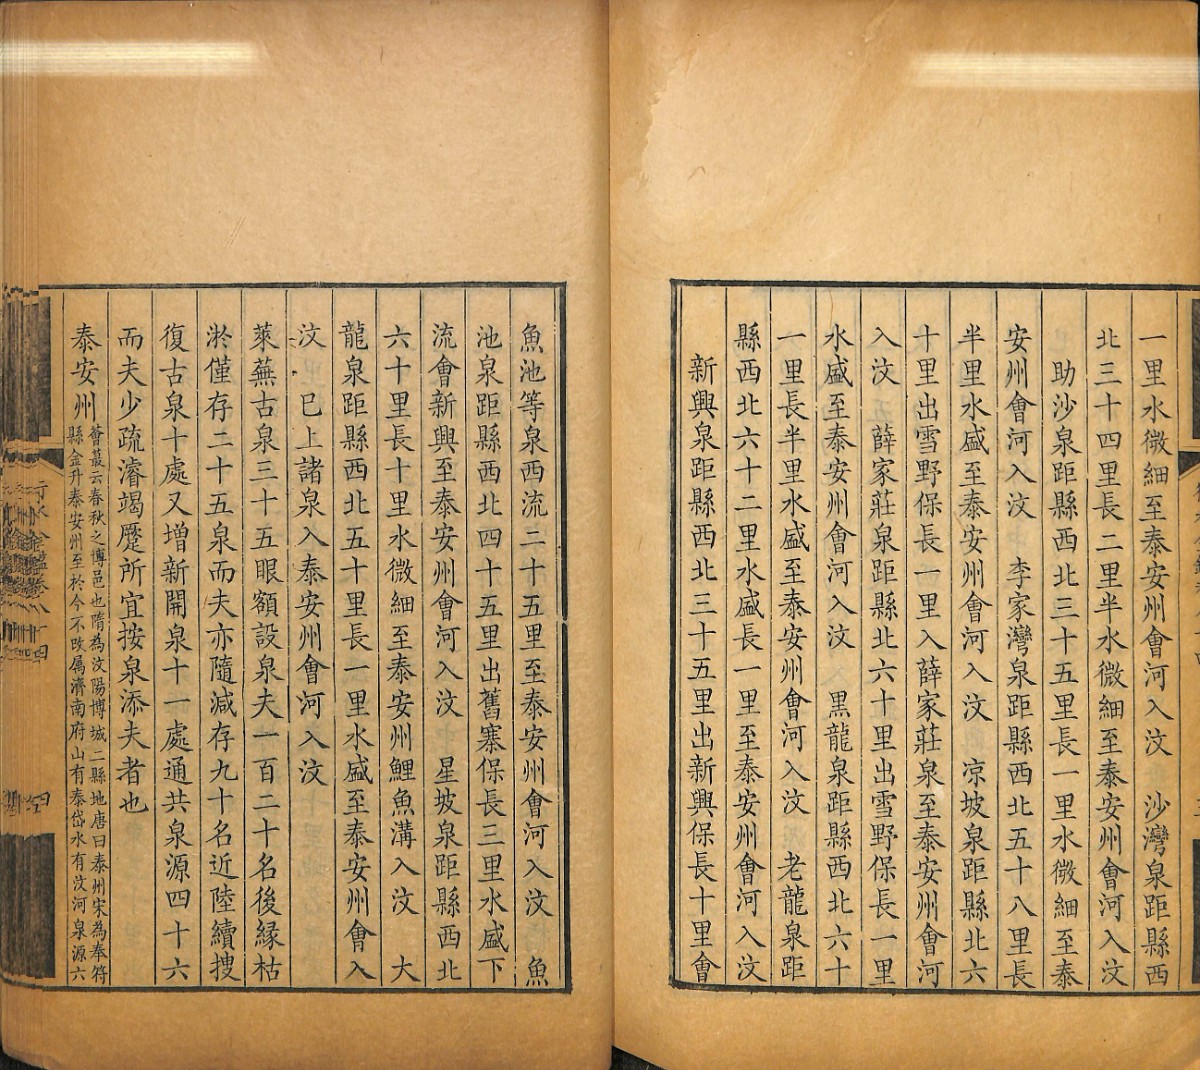 一里水微細至泰安州會河入汶　沙灣泉距縣西
北三十四里長二里半水微細至泰安州會河入汶
助沙泉距縣西北三十五里長一里水微細至泰
安州會河入汶　李家灣泉距縣西北五十八里長
半里水盛至泰安州會河入汶　凉坡泉距縣北六
十里出雪野保長一里入薛家莊泉至泰安州會河
入汶　薛家莊泉距縣北六十里出雪野保長一里
水盛至泰安州會河入汶　黑龍泉距縣西北六十
一里長半里水盛至泰安州會河入汶　老龍泉距
縣西北六十二里水盛長一里至泰安州會河入汶
新興泉距縣西北三十五里出新興保長十里會
魚池等泉西流二十五里至泰安州會河入汶　魚
池泉距縣西北四十五里出舊寨保長三里水盛下
流會新興至泰安州會河入汶　星坡泉距縣西北
六十里長十里水微細至泰安州鯉魚溝入汶　大
龍泉距縣西北五十里長一里水盛至泰安州會入
汶　巳上諸泉入泰安州會河入汶
萊蕪古泉三十五眼額設泉夫一百二十名後緣枯
淤僅存二十五泉而夫亦隨減存九十名近陸續搜
復古泉十處又增新開泉十一處通共泉源四十六
而夫少疏濬竭蹷所宜按泉添夫者也
泰安州
薈蕞云春秋之博邑也隋為汶陽博城二縣地唐曰泰州宋為奉符
縣金升泰安州至於今不改属濟南府山有泰岱水有汶河泉源六